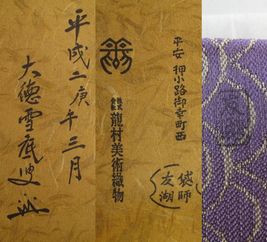 平成二庚午三月
大徳雪底叟
平安 押小路御幸町西
株式会社 龍村美術織物
袋師
友湖